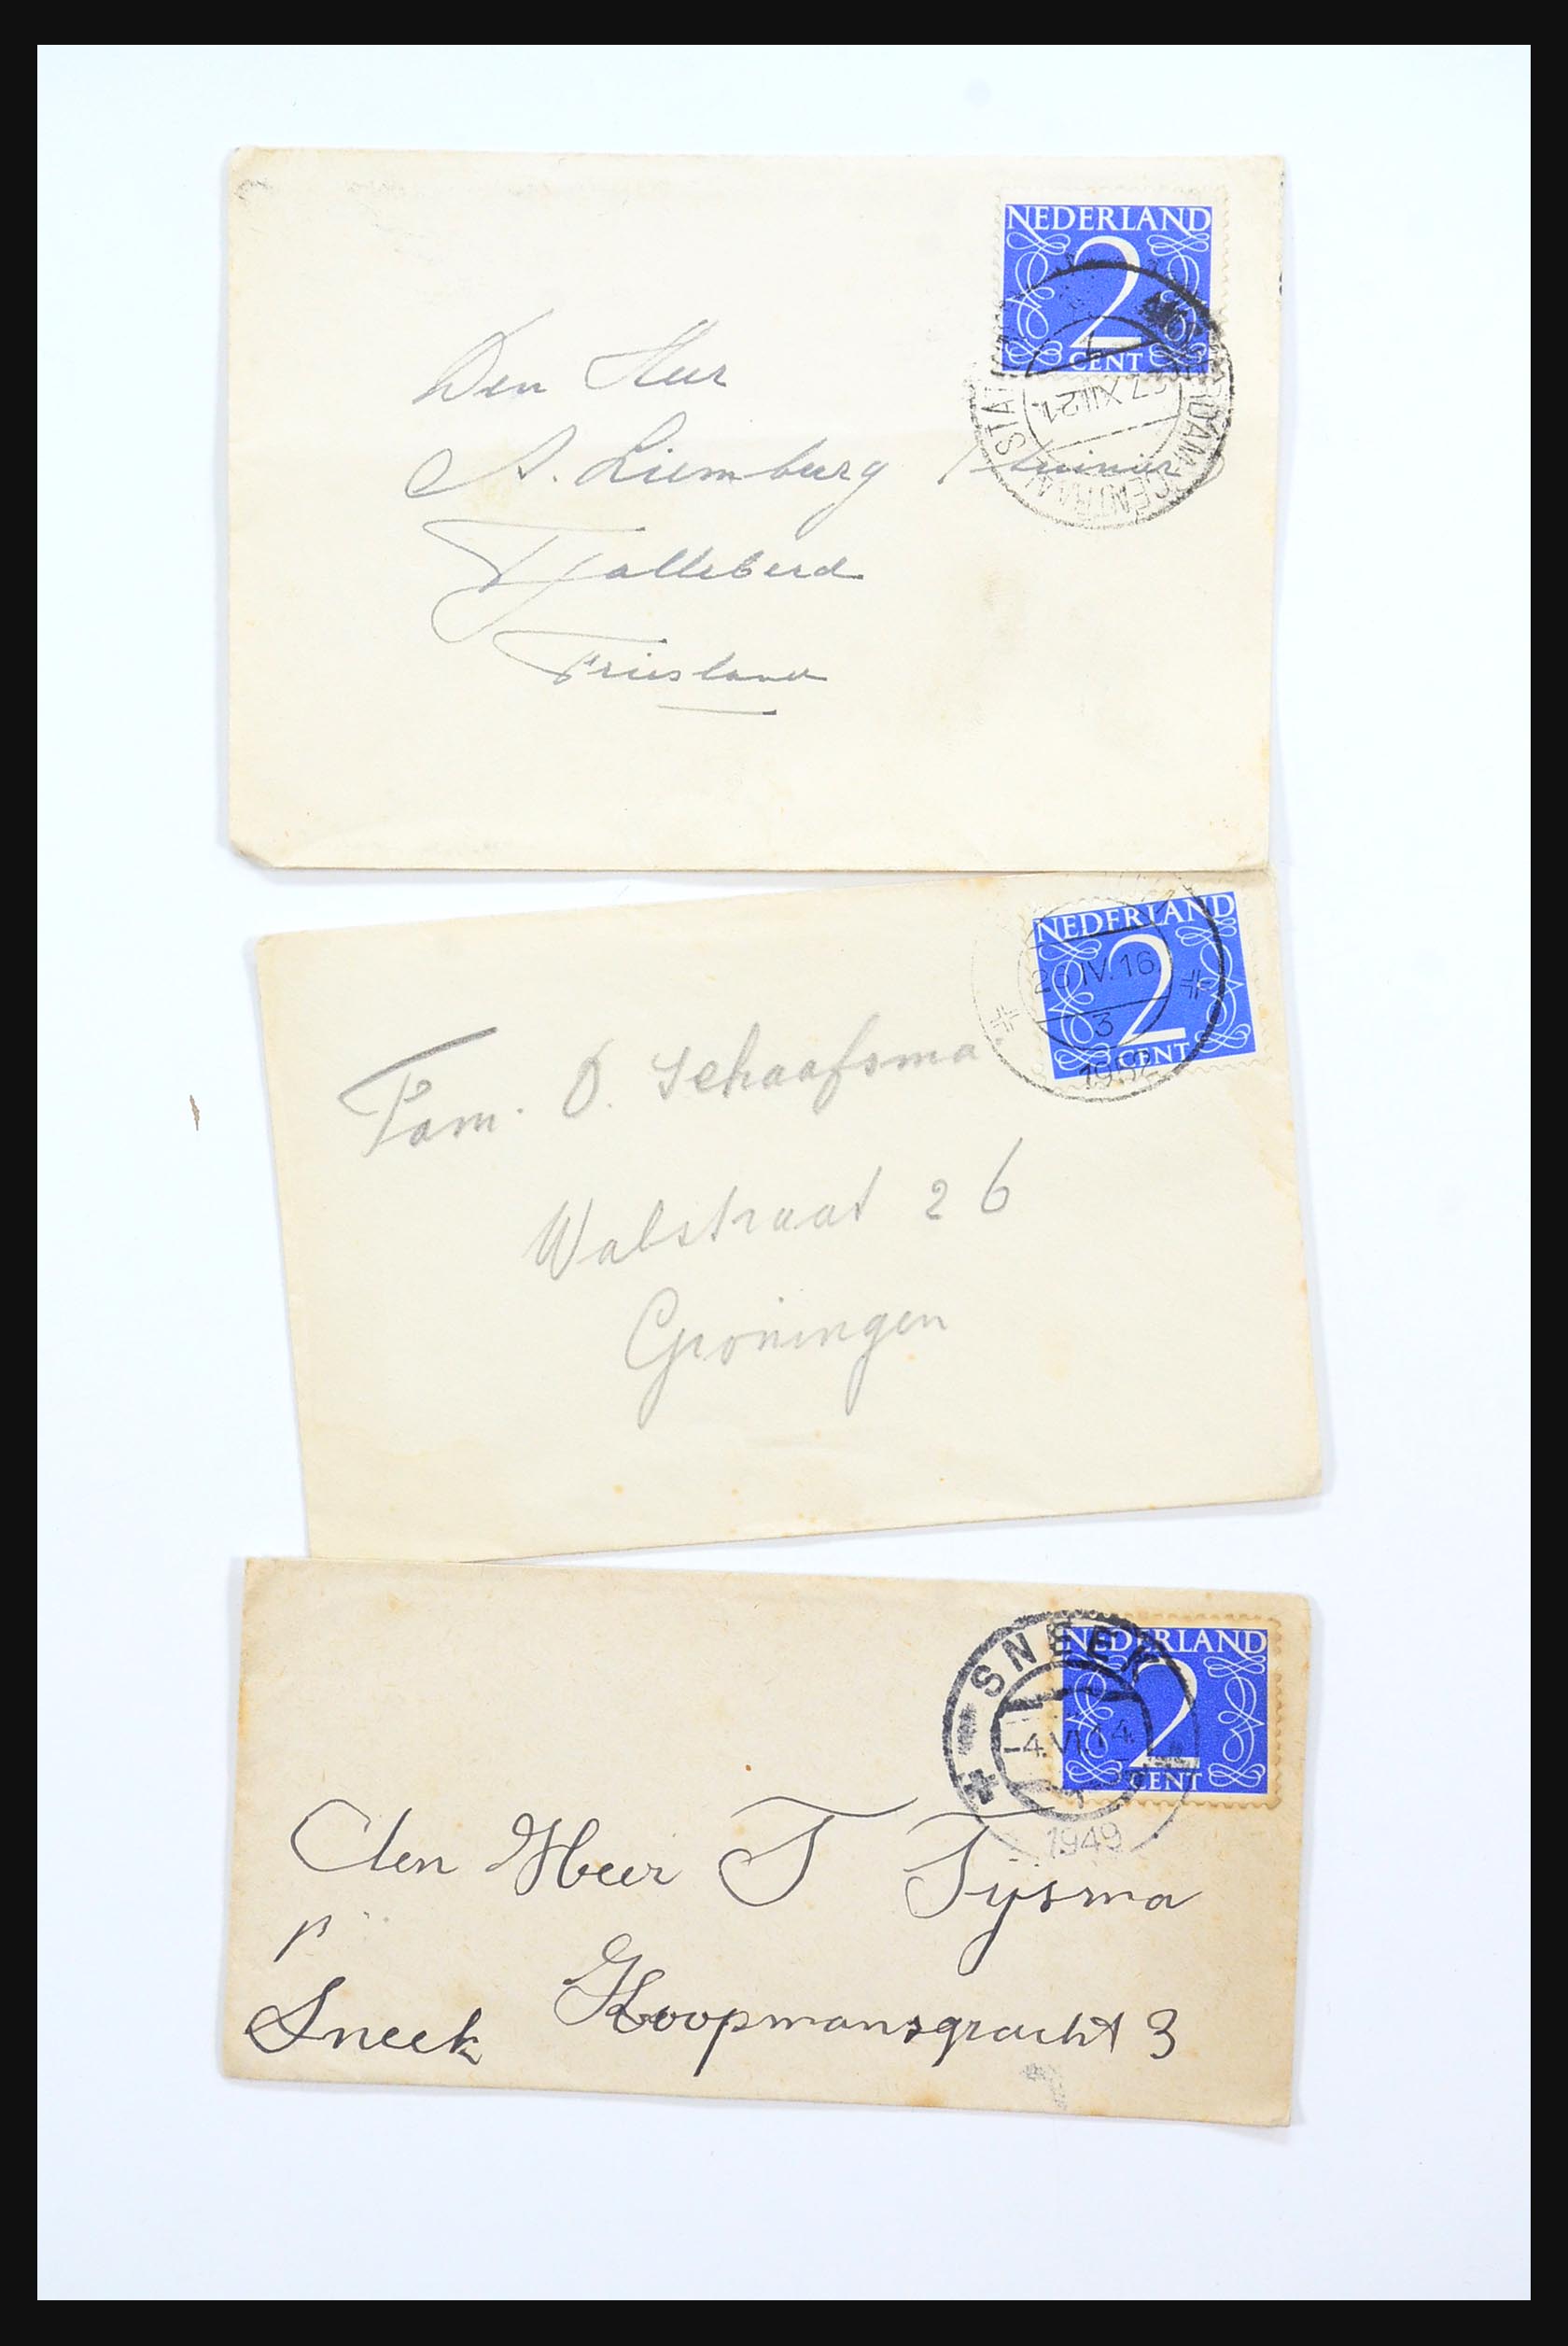 NEDERLAND
2
CENT
CENTRAAL STA
Den Heer
A. Liemburg / tuinier
Tjalleberd
Friesland
NEDERLAND
2
CENT
26 IV. 16
3
1952
Fam. D. Schaafsma.
Walstraat 26
Groningen
NEDERLAND
2
CENT
SNEEK
-4.VI.14
1
1949
den Heer T Tysma
p
Koopmansgracht 3
Sneek